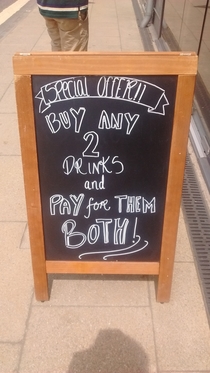 SPECIAL OFFER!!
BUY ANY
2
DRINKS
and
PAY for THEM
BOTH!